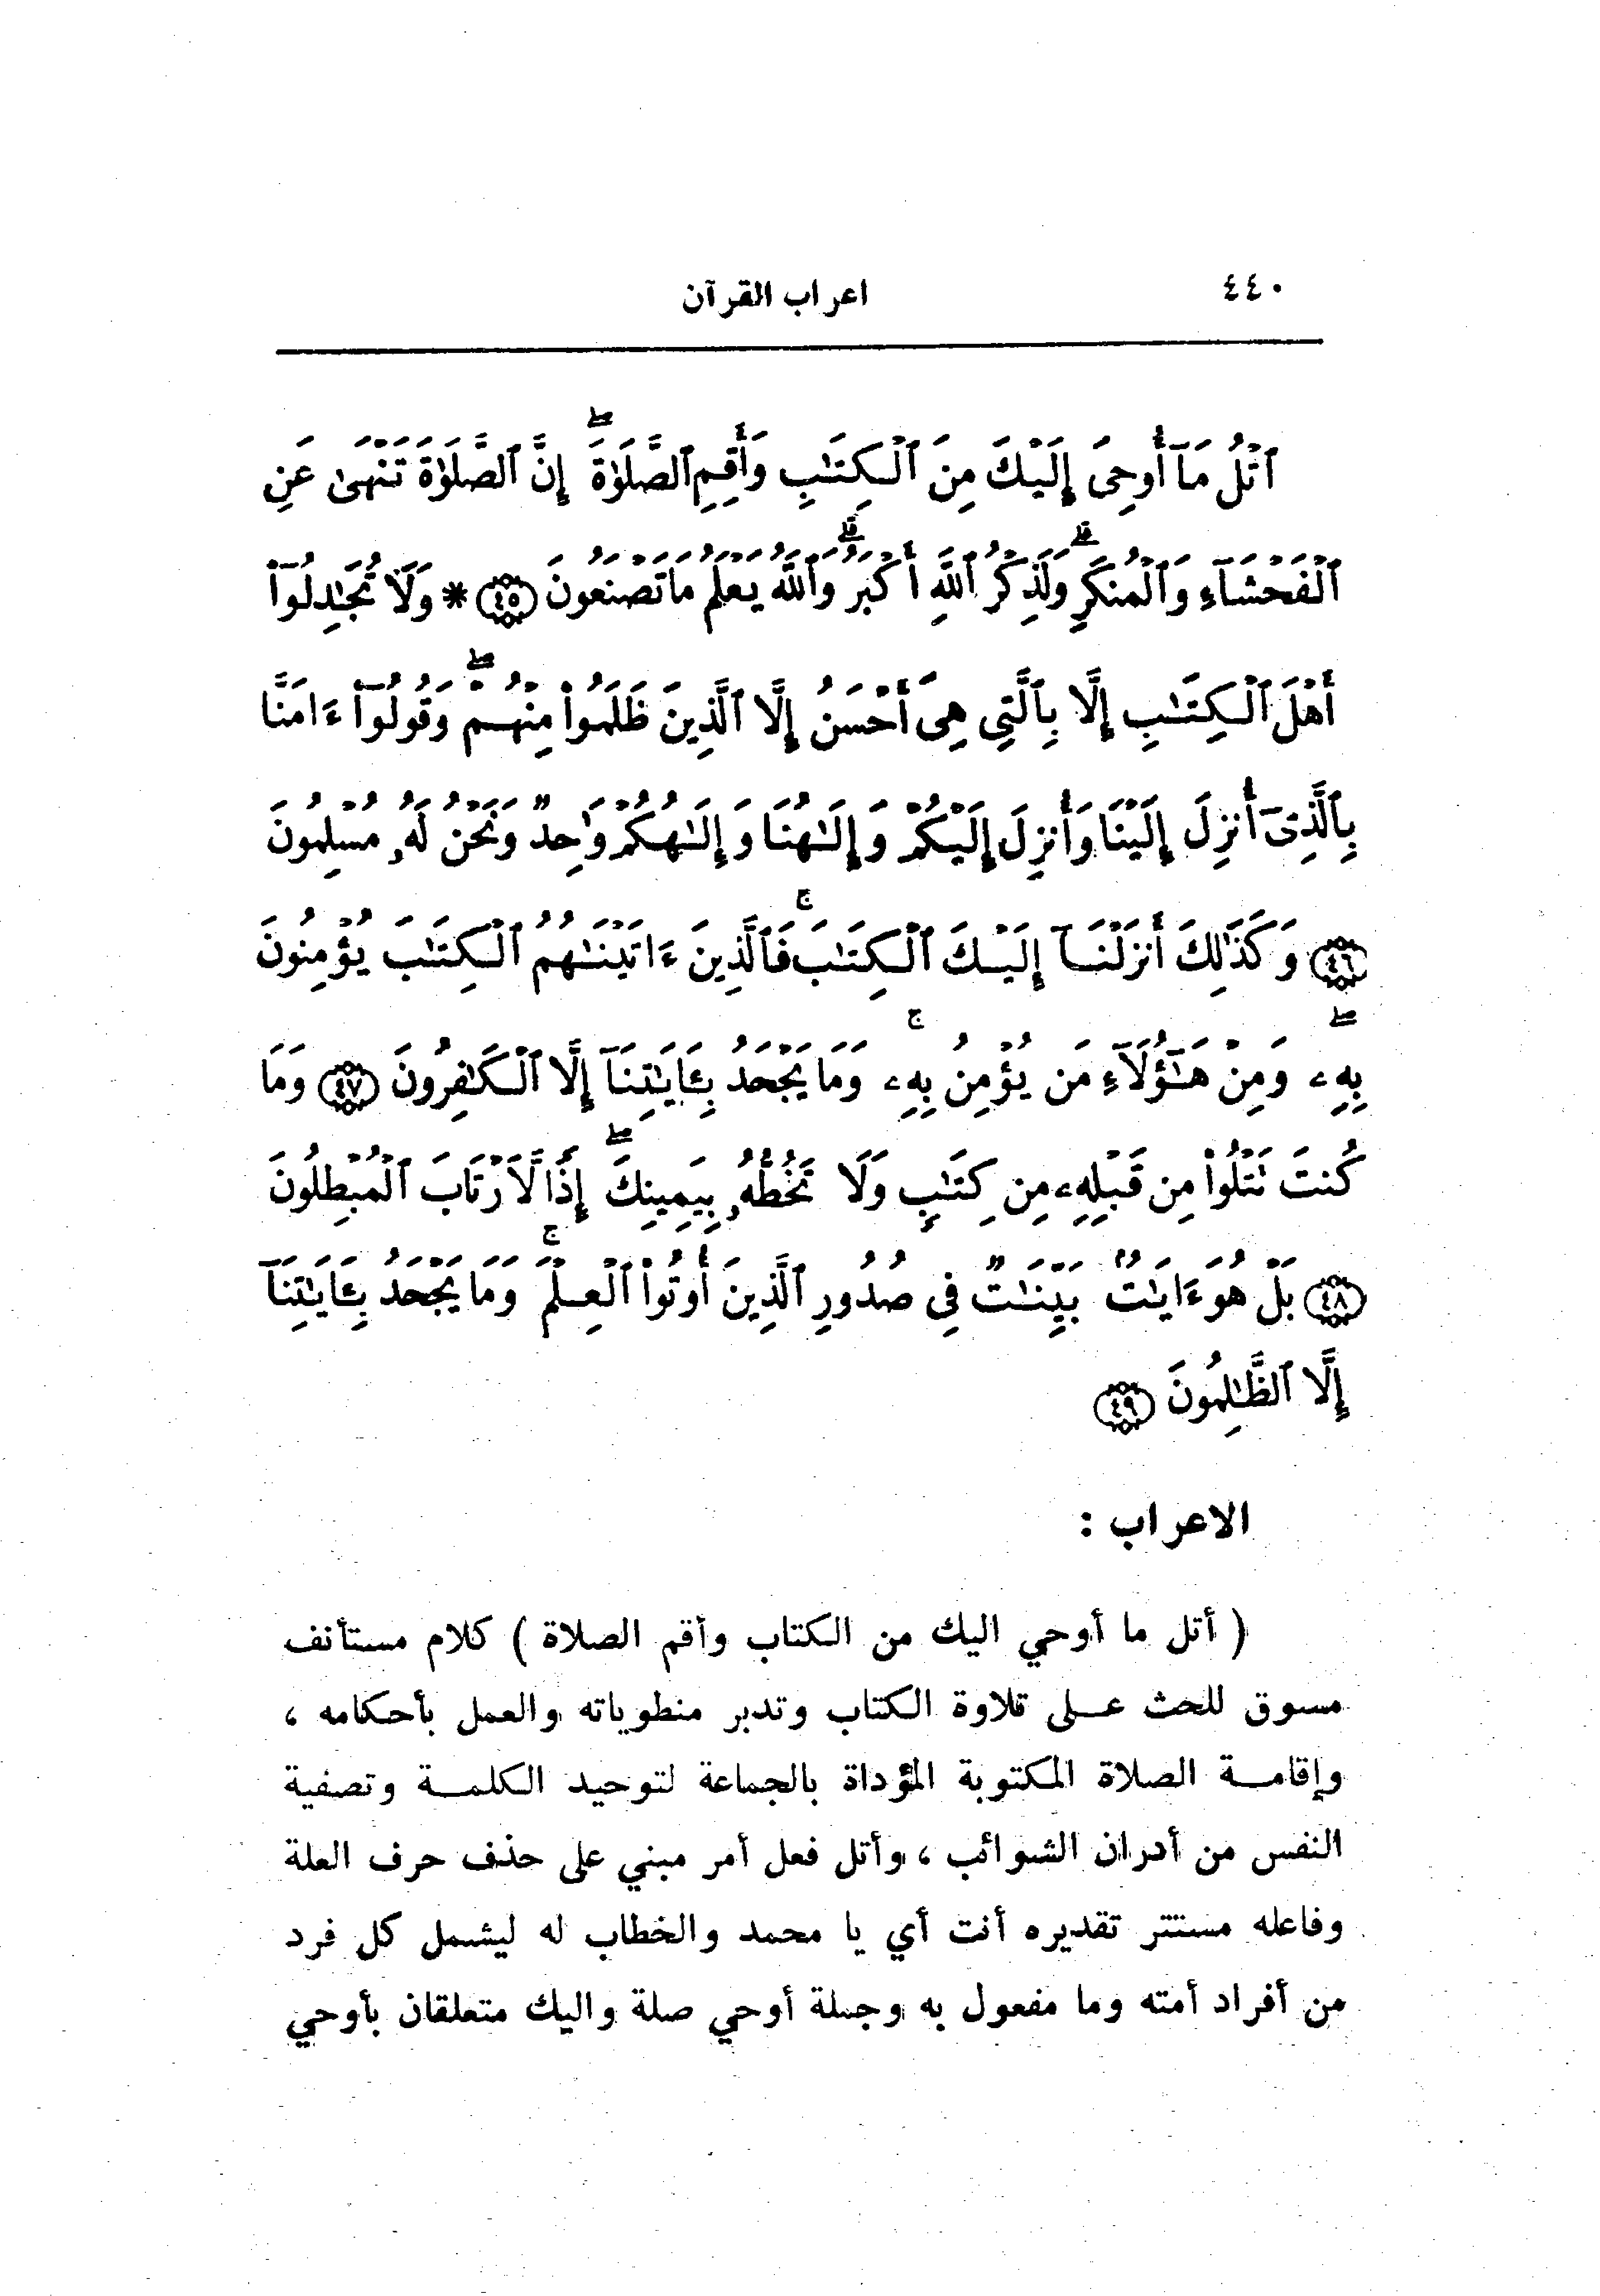 ٤٤٠ اعراب القرآن
ٱتْلُ مَآ أُوحِىَ إِلَيْكَ مِنَ ٱلْكِتَٰبِ وَأَقِمِ ٱلصَّلَوٰةَ ۖ إِنَّ ٱلصَّلَوٰةَ تَنْهَىٰ عَنِ
ٱلْفَحْشَآءِ وَٱلْمُنكَرِ ۗ وَلَذِكْرُ ٱللَّهِ أَكْبَرُ ۗ وَٱللَّهُ يَعْلَمُ مَا تَصْنَعُونَ ﴿٤٥﴾ * وَلَا تُجَٰدِلُوٓا۟
أَهْلَ ٱلْكِتَٰبِ إِلَّا بِٱلَّتِى هِىَ أَحْسَنُ إِلَّا ٱلَّذِينَ ظَلَمُوا۟ مِنْهُمْ ۖ وَقُولُوٓا۟ ءَامَنَّا
بِٱلَّذِىٓ أُنزِلَ إِلَيْنَا وَأُنزِلَ إِلَيْكُمْ وَإِلَٰهُنَا وَإِلَٰهُكُمْ وَٰحِدٌ وَنَحْنُ لَهُۥ مُسْلِمُونَ
﴿٤٦﴾ وَكَذَٰلِكَ أَنزَلْنَآ إِلَيْكَ ٱلْكِتَٰبَ ۚ فَٱلَّذِينَ ءَاتَيْنَٰهُمُ ٱلْكِتَٰبَ يُؤْمِنُونَ
بِهِۦ ۖ وَمِنْ هَٰٓؤُلَآءِ مَن يُؤْمِنُ بِهِۦ ۚ وَمَا يَجْحَدُ بِـَٔايَٰتِنَآ إِلَّا ٱلْكَٰفِرُونَ ﴿٤٧﴾ وَمَا
كُنتَ تَتْلُوا۟ مِن قَبْلِهِۦ مِن كِتَٰبٍ وَلَا تَخُطُّهُۥ بِيَمِينِكَ ۖ إِذًا لَّٱرْتَابَ ٱلْمُبْطِلُونَ
﴿٤٨﴾ بَلْ هُوَ ءَايَٰتٌۢ بَيِّنَٰتٌ فِى صُدُورِ ٱلَّذِينَ أُوتُوا۟ ٱلْعِلْمَ ۚ وَمَا يَجْحَدُ بِـَٔايَٰتِنَآ
إِلَّا ٱلظَّٰلِمُونَ ﴿٤٩﴾
الاعراب :
( أتل ما أوحي اليك من الكتاب وأقم الصلاة ) كلام مستأنف
مسوق للحث على تلاوة الكتاب وتدبر منطوياته والعمل بأحكامه ،
وإقامة الصلاة المكتوبة المؤداة بالجماعة لتوحيد الكلمة وتصفية
النفس من أدران الشوائب ، وأتل فعل أمر مبني على حذف حرف العلة
وفاعله مستتر تقديره أنت أي يا محمد والخطاب له ليشمل كل فرد
من أفراد أمته وما مفعول به وجملة أوحي صلة واليك متعلقان بأوحي